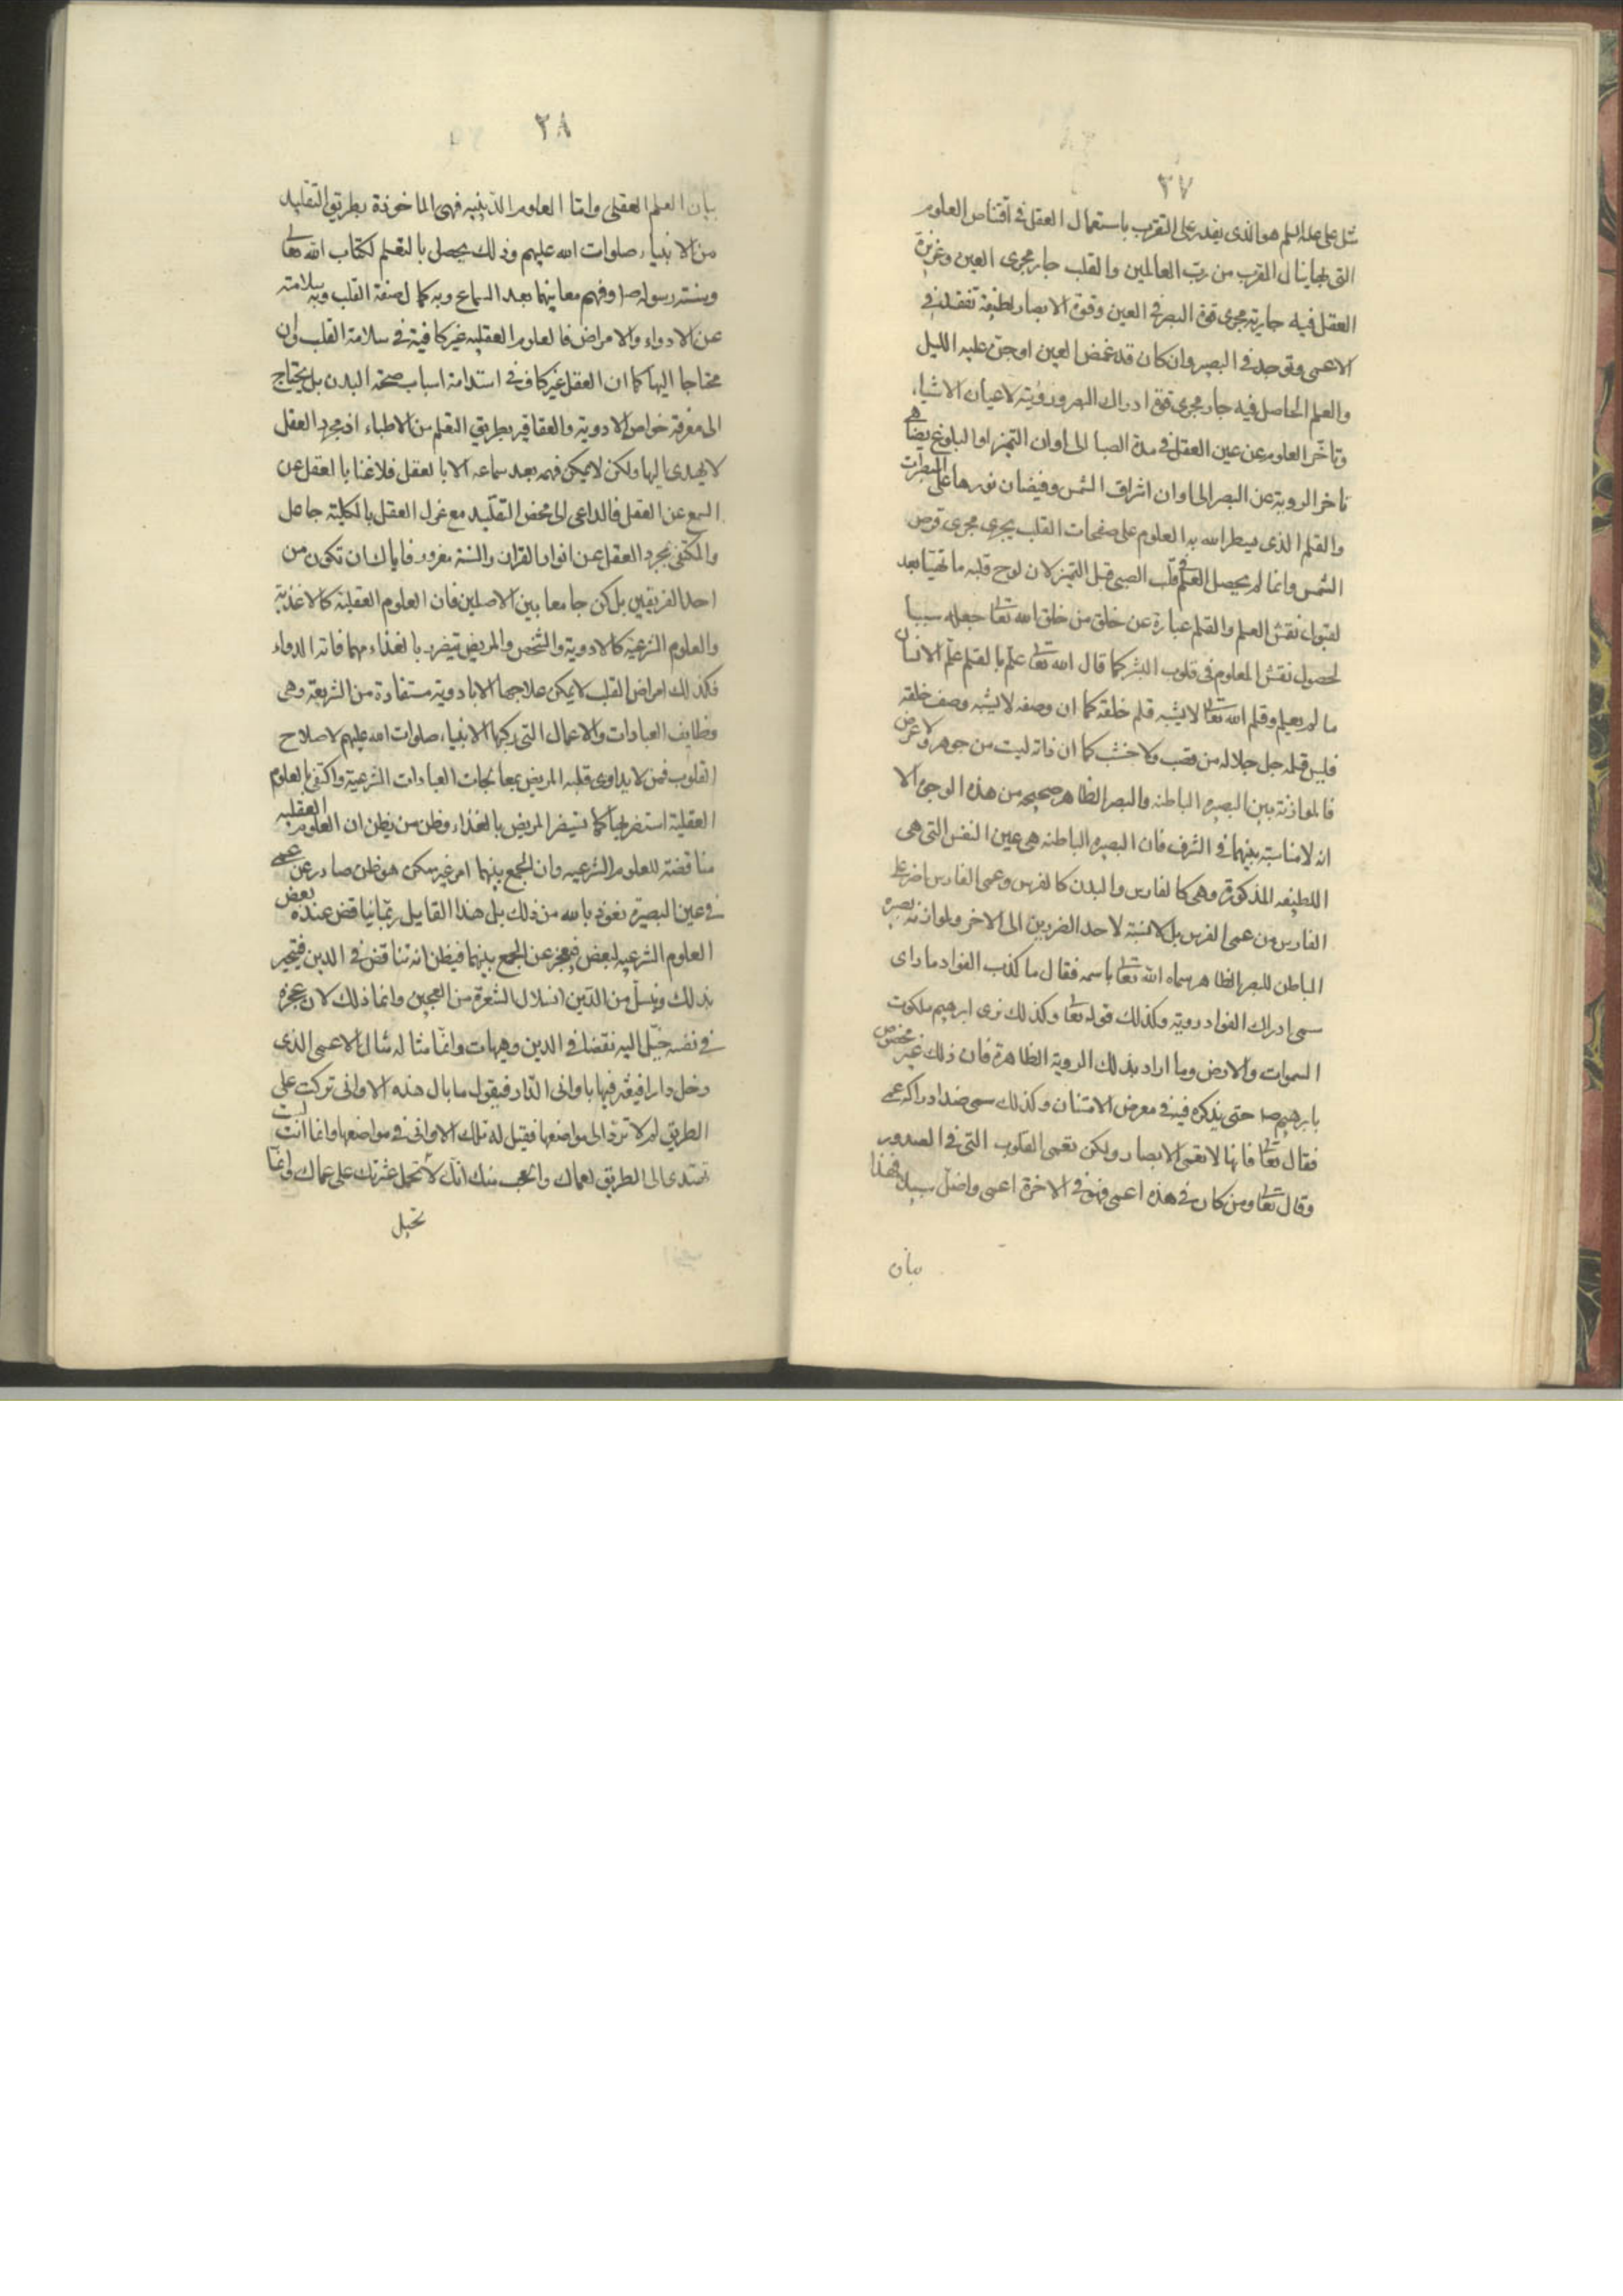 ٣٧
مثل علي عليه السلم هو الذى يقدر على التقرب باستعمال العقل فى اقتناص العلوم
التى بها ينال القرب من رب العالمين والقلب جار مجرى العين وغريزة
العقل فيه جارية مجرى قوة البصر فى العين وقوة الابصار لطيفة تفقد فى
الاعمى وتوجد فى البصير وان كان قد غمض العين او جن عليه الليل
والعلم الحاصل فيه جار مجرى قوة ادراك البصر ورؤيته لاعيان الاشياء
وتاخر العلوم عن عين العقل فى مدة الصبا الى اوان التميز او البلوغ يضاهى
تاخر الروية عن البصر الى اوان اشراق الشمس وفيضان نورها على المبصرات
والقلم الذى سطر الله به العلوم على صفحات القلب يجرى مجرى قرص
الشمس وانما لم يحصل العلم فى قلب الصبى قبل التميز لان لوح قلبه ما تهيئا بعد
لقبول نقش العلم والقلم عبارة عن خلق من خلق الله تعا جعله سببا
لحصول نقش المعلوم فى قلوب البشر كما قال الله تعا علم بالقلم علم الانسان
ما لم يعلم وقلم الله تعا لا يشبه قلم خلقه كما ان وصفه لا يشبه وصف خلقه
فليس قلمه جل جلاله من قصب ولا خشب كما ان ذاته ليست من جوهر ولا عرض
فالموازنة بين البصيره الباطنه والبصر الظاهر صحيحه من هذه الوجوه الا
انه لا مناسبة بينهما فى الشرف فان البصيره الباطنه هى عين النفس التى هى
اللطيفه المذكورة وهى كالفارس والبدن كالفرس وعمى الفارس اضر على
الفارس من عمى الفرس بل لا نسبة لاحد الضررين الى الاخر ولموازنة بصيره
الباطن للبصر الظاهر سماه الله تعا باسمه فقال ما كذب الفواد ما راى
سمى ادراك الفواد روية وكذلك قوله تعا وكذلك نرى ابرهيم ملكوت
السموات والارض وما اراد بذلك الروية الظاهرة فان ذلك غير مخصوص
بابرهيم ص حتى يذكره فيه فى معرض الامتنان وكذلك سمى ضد ادراكه عمى
فقال تعا فانها لا تعمى الابصار ولكن تعمى القلوب التى فى الصدور
وقال تعا ومن كان فى هذه اعمى فهو فى الاخرة اعمى واضل سبيلا فهذا
بيان
٣٨
بيان العلم العقلى واما العلوم الدينيه فهى الماخوذة بطريق التقليد
من الانبياء صلوات الله عليهم وذلك يحصل بالتعلم لكتاب الله تعا
وسنة رسوله ص وفهم معانيهما بعد السماع وبه كمال صفة القلب وبه سلامته
عن الادواء والامراض فالعلوم العقليه غير كافية فى سلامة القلب وان
محتاجا اليها كما ان العقل غير كاف فى استدامة اسباب صحة البدن بل يحتاج
الى معرفة خواص الادوية والعقاقير بطريق التعلم من الاطباء اذ مجرد العقل
لا يهدى اليها ولكن لا يمكن فهمه بعد سماعه الا بالعقل فلا غنا بالعقل عن
السمع عن العقل فالداعى الى محض التقليد مع عزل العقل بالكلية جاهل
والمكتفى بمجرد العقل عن انوار القران والسنة مغرور فاياك ان تكون من
احد الفريقين بل كن جامعا بين الاصلين فان العلوم العقلية كالاغذية
والعلوم الشرعية كالادوية والشخص والمريض يتضرر بالغذاء مهما فاته الدواء
فكذلك امراض القلب لا يمكن علاجها الا بادوية مستفادة من الشريعة وهى
وظايف العبادات والاعمال التى ركبها الانبياء صلوات الله عليهم لاصلاح
القلوب فمن لا يداوى قلبه المريض بمعالجات العبادات الشرعية واكتفى بالعلوم
العقلية استضر بها كما يستضر المريض بالغذاء وظن من يظن ان العلوم العقليه
مناقضة للعلوم الشرعيه وان الجمع بينهما امر غير ممكن هو ظن صادر عن عمى
فى عين البصيرة نعوذ بالله من ذلك بل هذا القايل ربما يناقض عنده بعض
العلوم الشرعيه لبعض فيعجز عن الجمع بينهما فيظن انه تناقض فى الدين فيتحير
بذلك وينسل من الدين انسلال الشعرة من العجين وانما ذلك لان عجزه
فى نفسه خيل اليه نقضا فى الدين وهيهات وانما مثاله مثال الاعمى الذى
دخل دارا فيعثر فيها باوانى الدار فيقول ما بال هذه الاوانى تركت على
الطريق لم لا ترد الى مواضعها فقيل له تلك الاوانى فى مواضعها وانما انت لست
تهتدى الى الطريق لعماك والعجب منك انك لا تحمل عثرتك على عماك وانما
تحيل